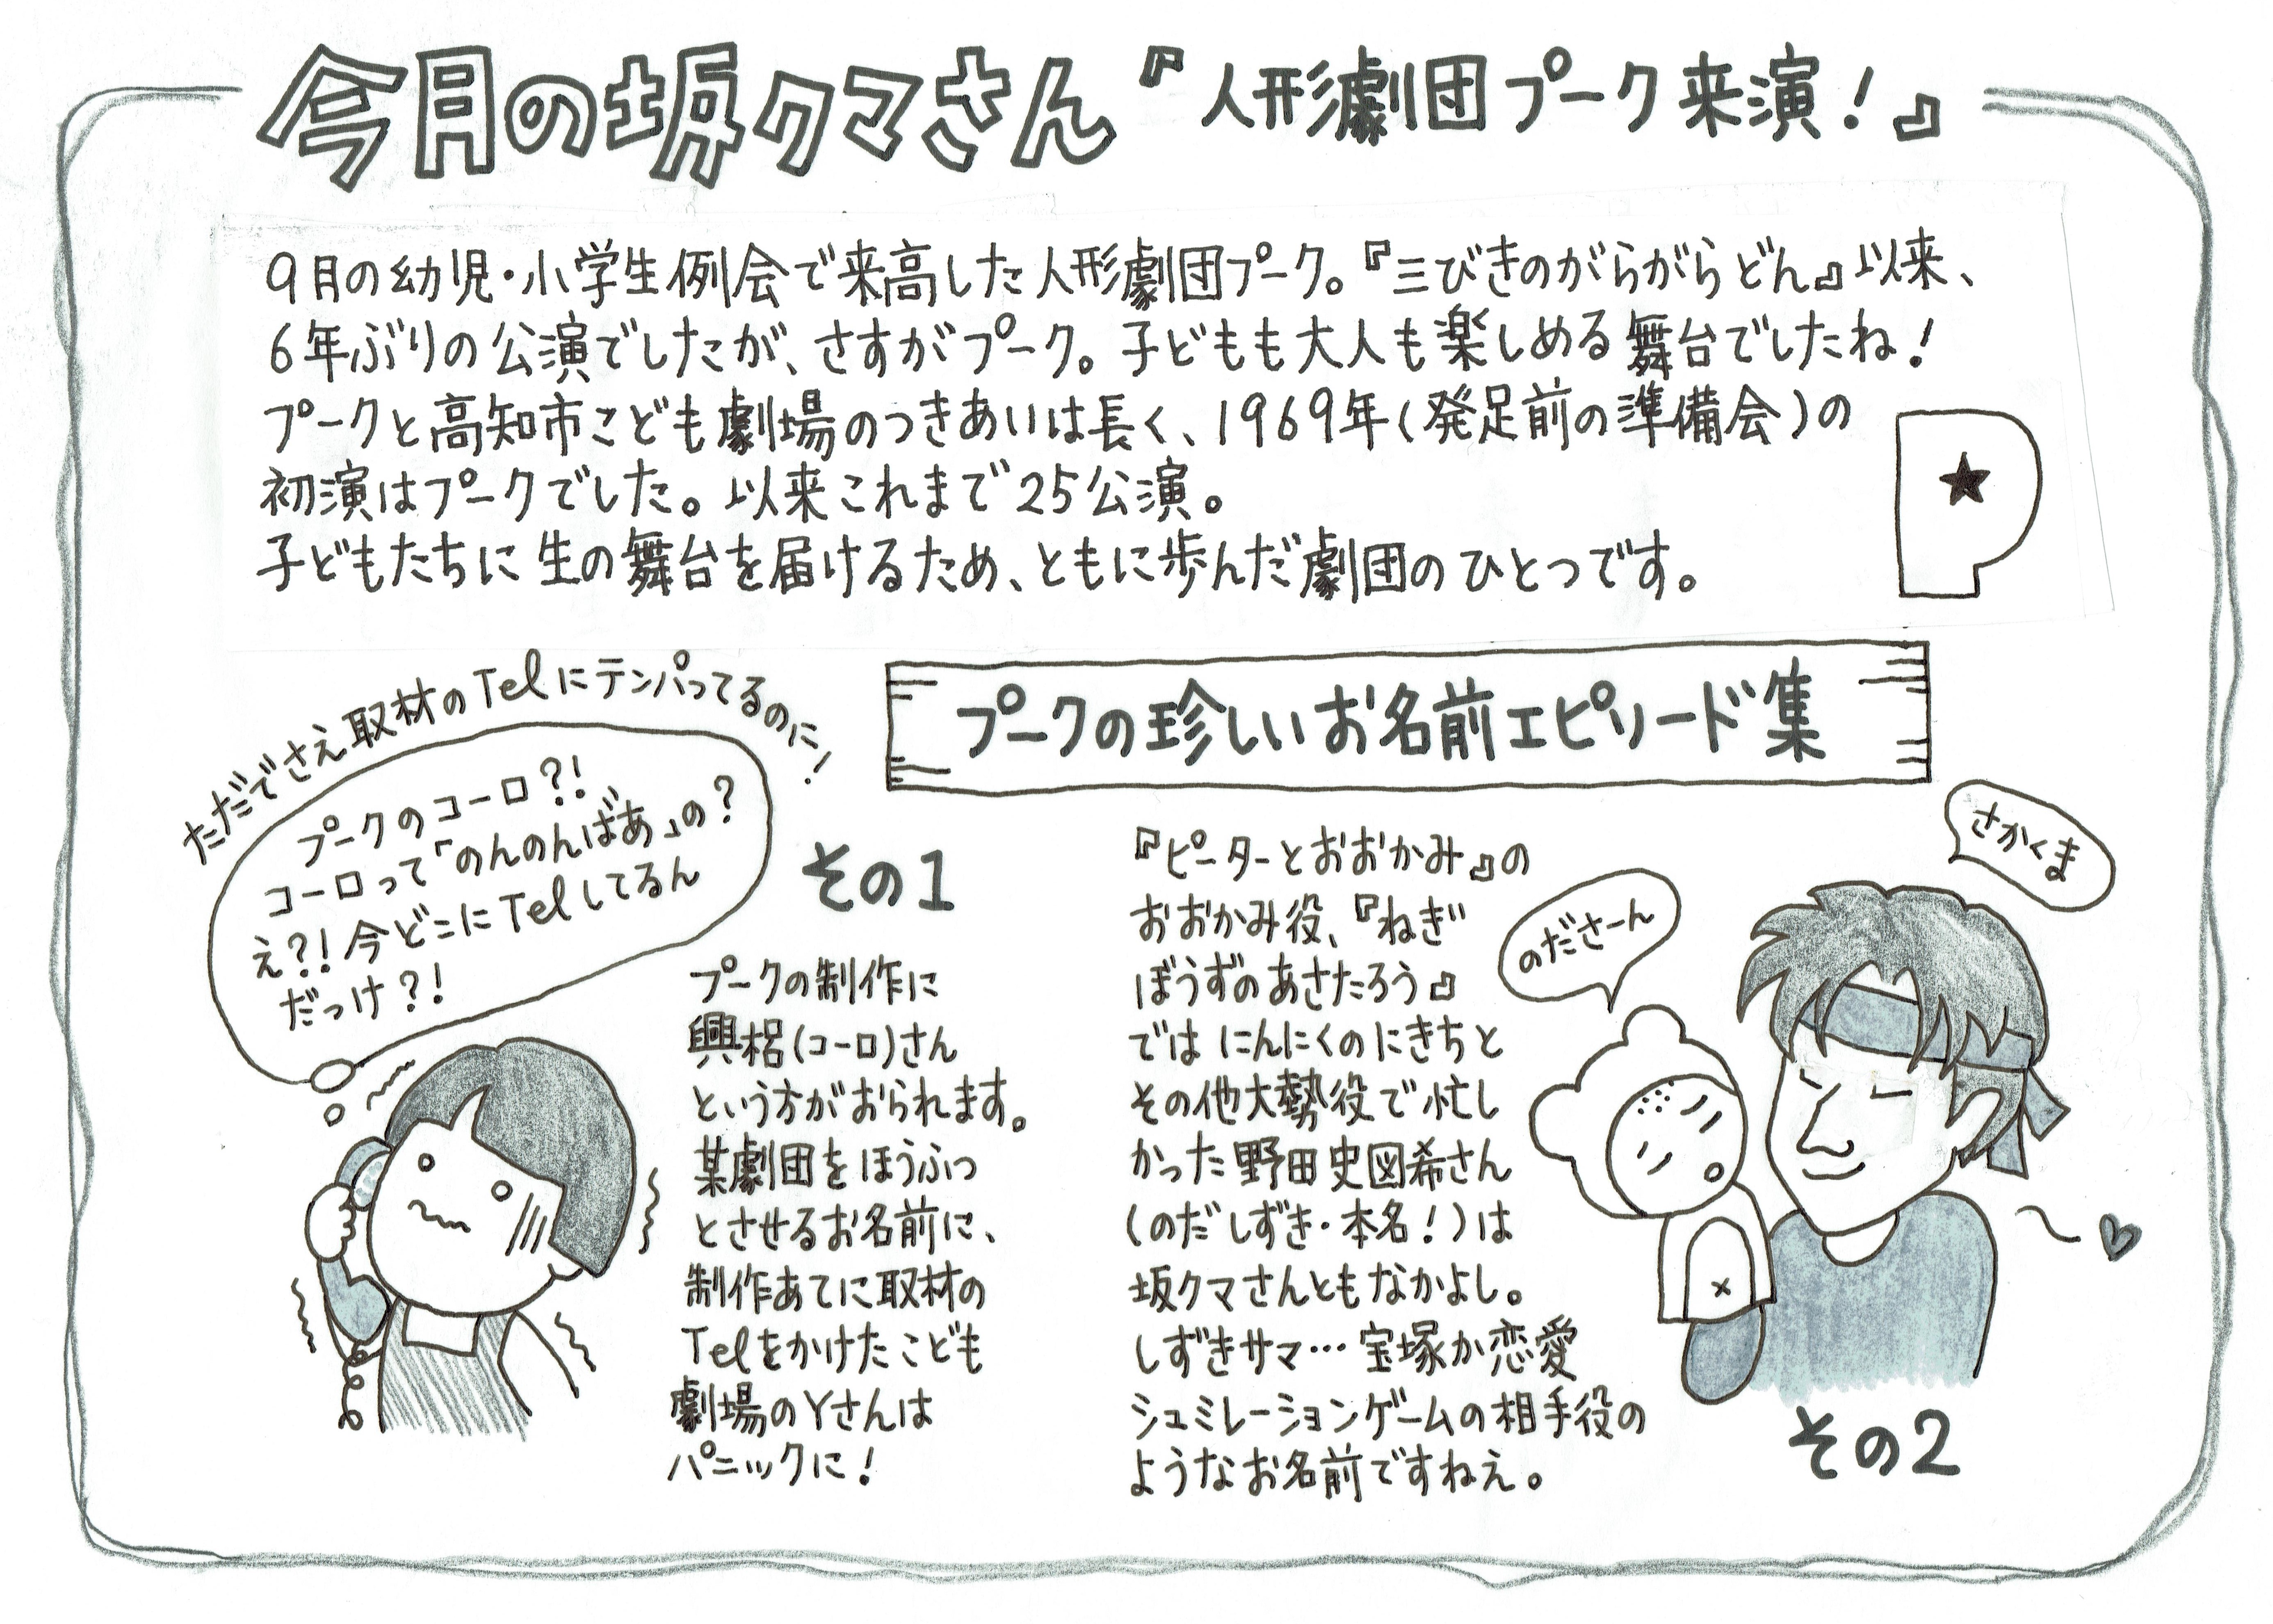 今月の坂クマさん『人形劇団プーク来演！』
9月の幼児・小学生例会で来高した人形劇団プーク。『三びきのがらがらどん』以来、
6年ぶりの公演でしたが、さすがプーク。子どもも大人も楽しめる舞台でしたね！
プークと高知市こども劇場のつきあいは長く、1969年(発足前の準備会)の
初演はプークでした。以来これまで25公演。
子どもたちに生の舞台を届けるため、ともに歩んだ劇団のひとつです。
P
プークの珍しいお名前エピソード集
ただでさえ取材のTelにテンパってるのに！
プークのコーロ?!
コーロって「のんのんばあ」の？
え?!今どこにTelしてるん
だっけ?!
その1
プークの制作に
興梠(コーロ)さん
という方がおられます。
某劇団をほうふつ
とさせるお名前に、
制作あてに取材の
Telをかけたこども
劇場のYさんは
パニックに！
『ピーターとおおかみ』の
おおかみ役、『ねぎ
ぼうずのあさたろう』
では にんにくのにきちと
その他大勢役で忙し
かった野田史図希さん
(のだしずき・本名！)は
坂クマさんともなかよし。
しずきサマ…宝塚か恋愛
シュミレーションゲームの相手役の
ようなお名前ですねえ。
のださーん
さかくま
その2